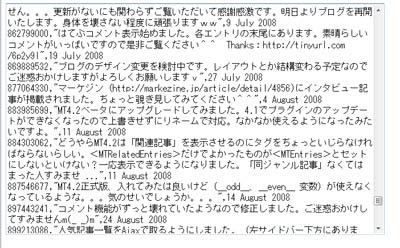 せん。。。更新がないにも関わらずご覧いただいて感謝感激です。明日よりブログを再開
いたします。身体を壊さない程度に頑張りますｗｗ",9 July 2008
862799000,"はてぶコメント表示始めました。各エントリの末尾にあります。素晴らしい
コメントがいっぱいですので是非ご覧ください＾＾　Thanks：http://tinyurl.com
/6p2y9l",19 July 2008
869889532,"ブログのデザイン変更を検討中です。レイアウトとか結構変わる予定なので
ご迷惑おかけしますがよろしくお願いしますｖ",27 July 2008
877064330,"マーケジン(http://markezine.jp/article/detail/4856)にインタビュー記
事が掲載されました。ちょっと覗き見してみてください＾＾",4 August 2008
883985699,"MT4.2ベータにアップグレードしてみました。4.1でプラグインのアップデー
トができなくなったので上書きせずにリネームで対応。なかなか使えるようになったみた
いですよ。",11 August 2008
884303062,"どうやらMT4.2は「関連記事」を表示させるのにタグをちょっといじらなけれ
ばならないらしい。<MTRelatedEntries>だけでよかったものが<MTEntries>とセット
にしないといけない？一応表示できるようになりました。「同ジャンル記事」なくても
まった人すみませ ...",11 August 2008
887546677,"MT4.2正式版、入れてみたは良いけど（__odd__、__even__ 変数）が使えなく
なっているような。。。気のせいでしょうか。。。",14 August 2008
897443241,"コメント機能がずっと壊れていたようなので修正しました。ご迷惑おかけし
てすみませんm(_ _)m",24 August 2008
899213086,"人気記事一覧をAjaxで取るようにしました。（左サイドバー下方にありま